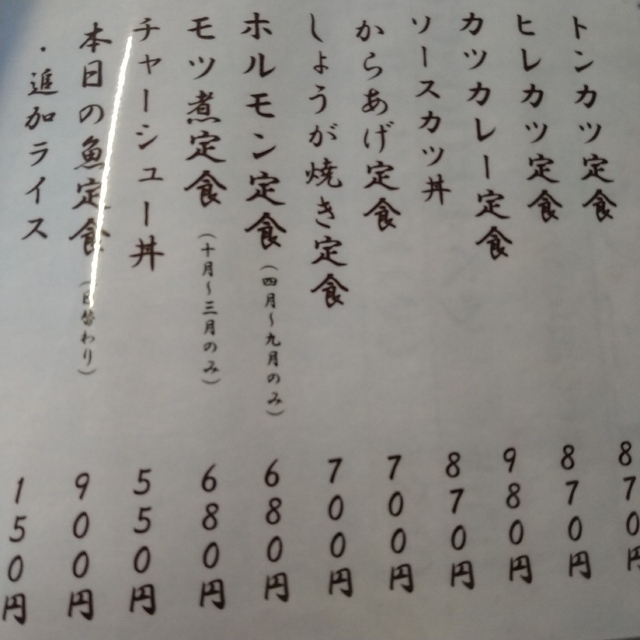 トンカツ定食 870円
ヒレカツ定食 870円
カツカレー定食 980円
ソースカツ丼 870円
からあげ定食 700円
しょうが焼き定食 700円
ホルモン定食(四月~九月のみ) 680円
モツ煮定食(十月~三月のみ) 680円
チャーシュー丼 550円
本日の魚定食(日替わり) 900円
・追加ライス 150円